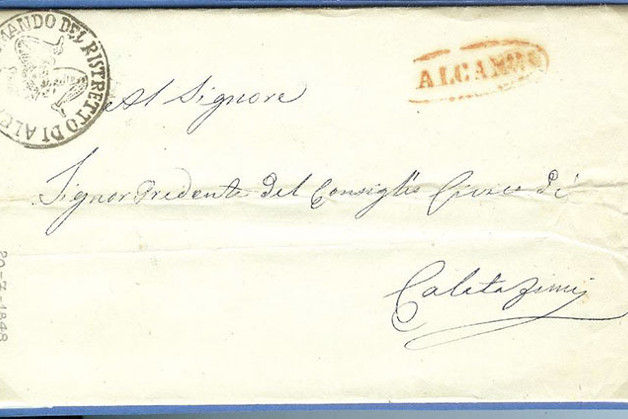 COMANDO DEL RISTRETTO DI ALC
ALCAMO
Al Signore
Signor Predente del Consiglio Civico di
Calatafimi
20-7-1848